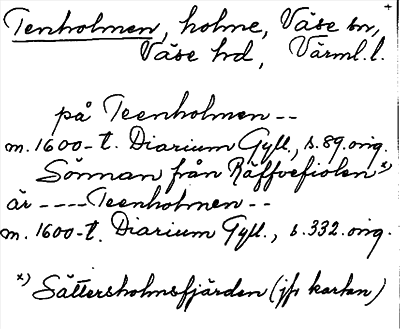 Tenholmen, holme, Väse sn,
Väse hd, Värml.l.
på Teenholmen --
m. 1600-t. Diarium Gyll., s.89.orig.
Sönnan från Räffvefiolen x)
är ---- Teenholmen --
m. 1600-t. Diarium Gyll., s.332.orig.
x) Sättersholmsfjärden (jfr kartan)